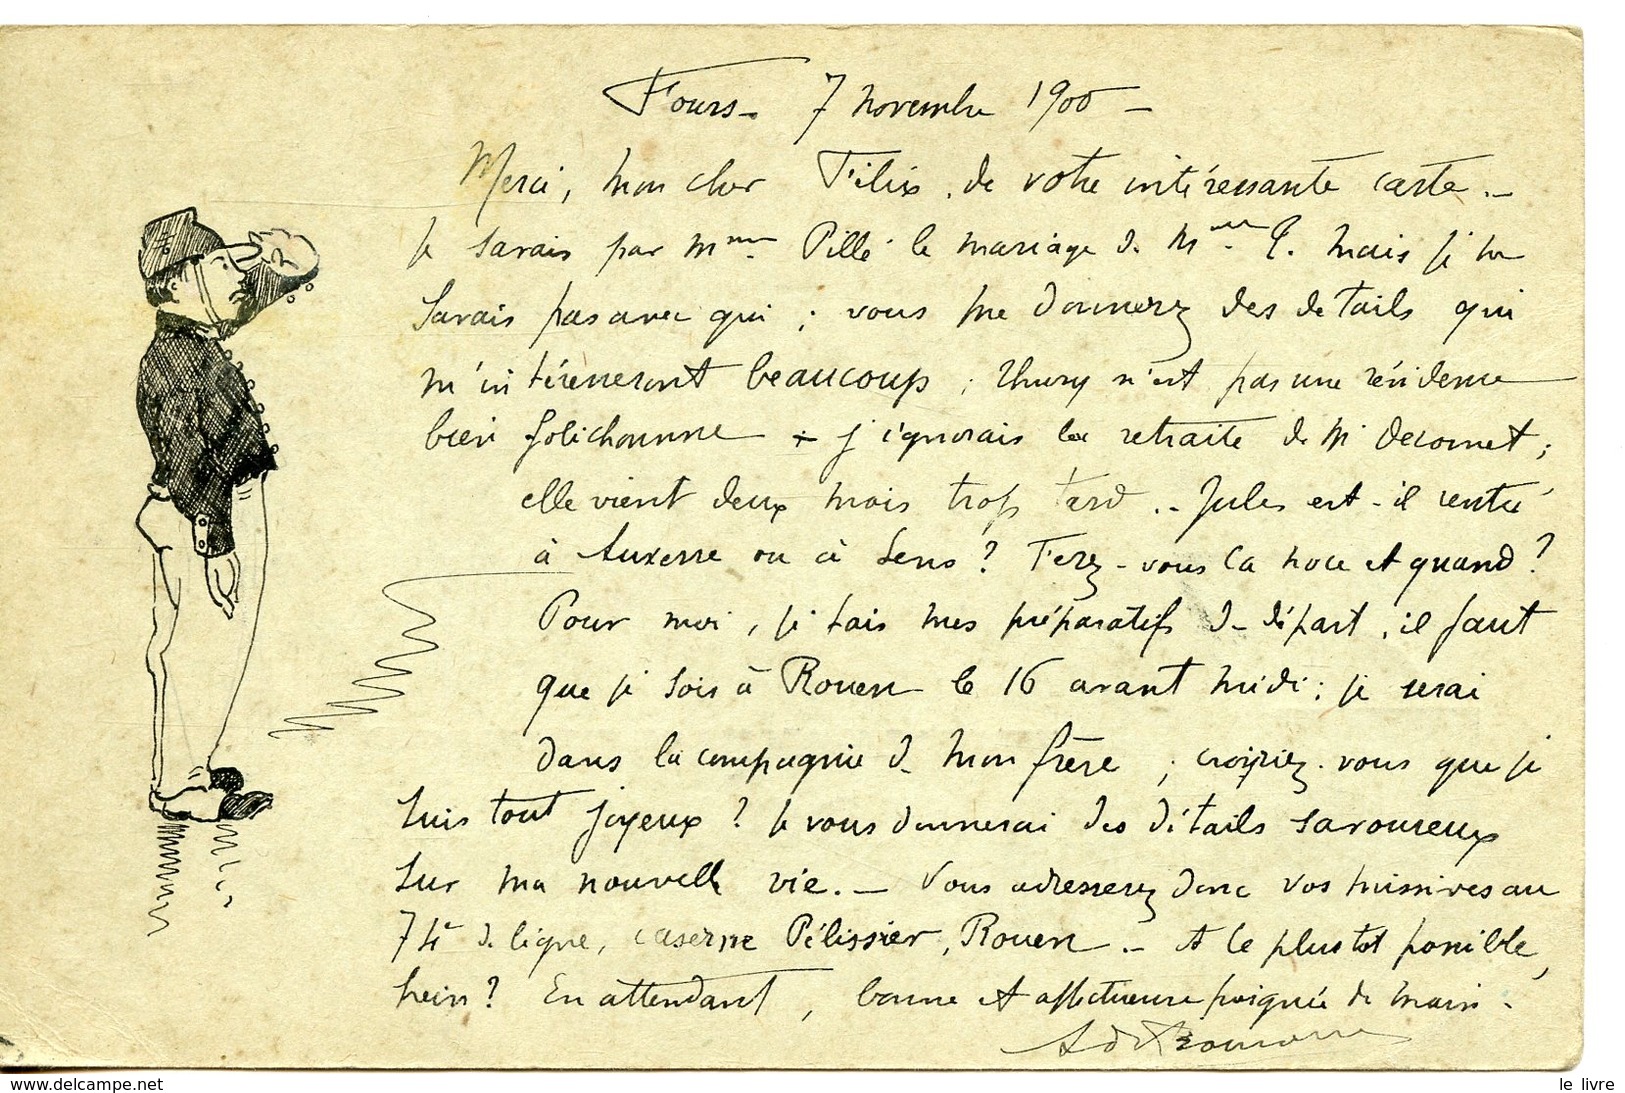 Fours - 7 novembre 1900 -
Merci, mon cher Félix, de votre intéressante carte. -
Je savais par Mme Pillé le mariage de Melle P. mais je ne
savais pas avec qui ; vous me donnerez des détails qui
m'intéresseront beaucoup ; Thury n'est pas une résidence
bien folichonne - j'ignorais la retraite de Mr Decornet ;
elle vient deux mois trop tard .. Jules est-il rentré
à Auxerre ou à Sens ? Ferez-vous la noce et quand ?
Pour moi, je fais mes préparatifs de départ, il faut
que je sois à Rouen le 16 avant midi ; je serai
dans la compagnie de mon frère ; croiriez-vous que je
suis tout joyeux ? Je vous donnerai des détails savoureux
sur ma nouvelle vie. - Vous adresserez donc vos missives au
74e de ligne, caserne Pélissier, Rouen - et le plus tôt possible,
hein ? En attendant, bonne et affectueuse poignée de main -
www.delcampe.net
le livre